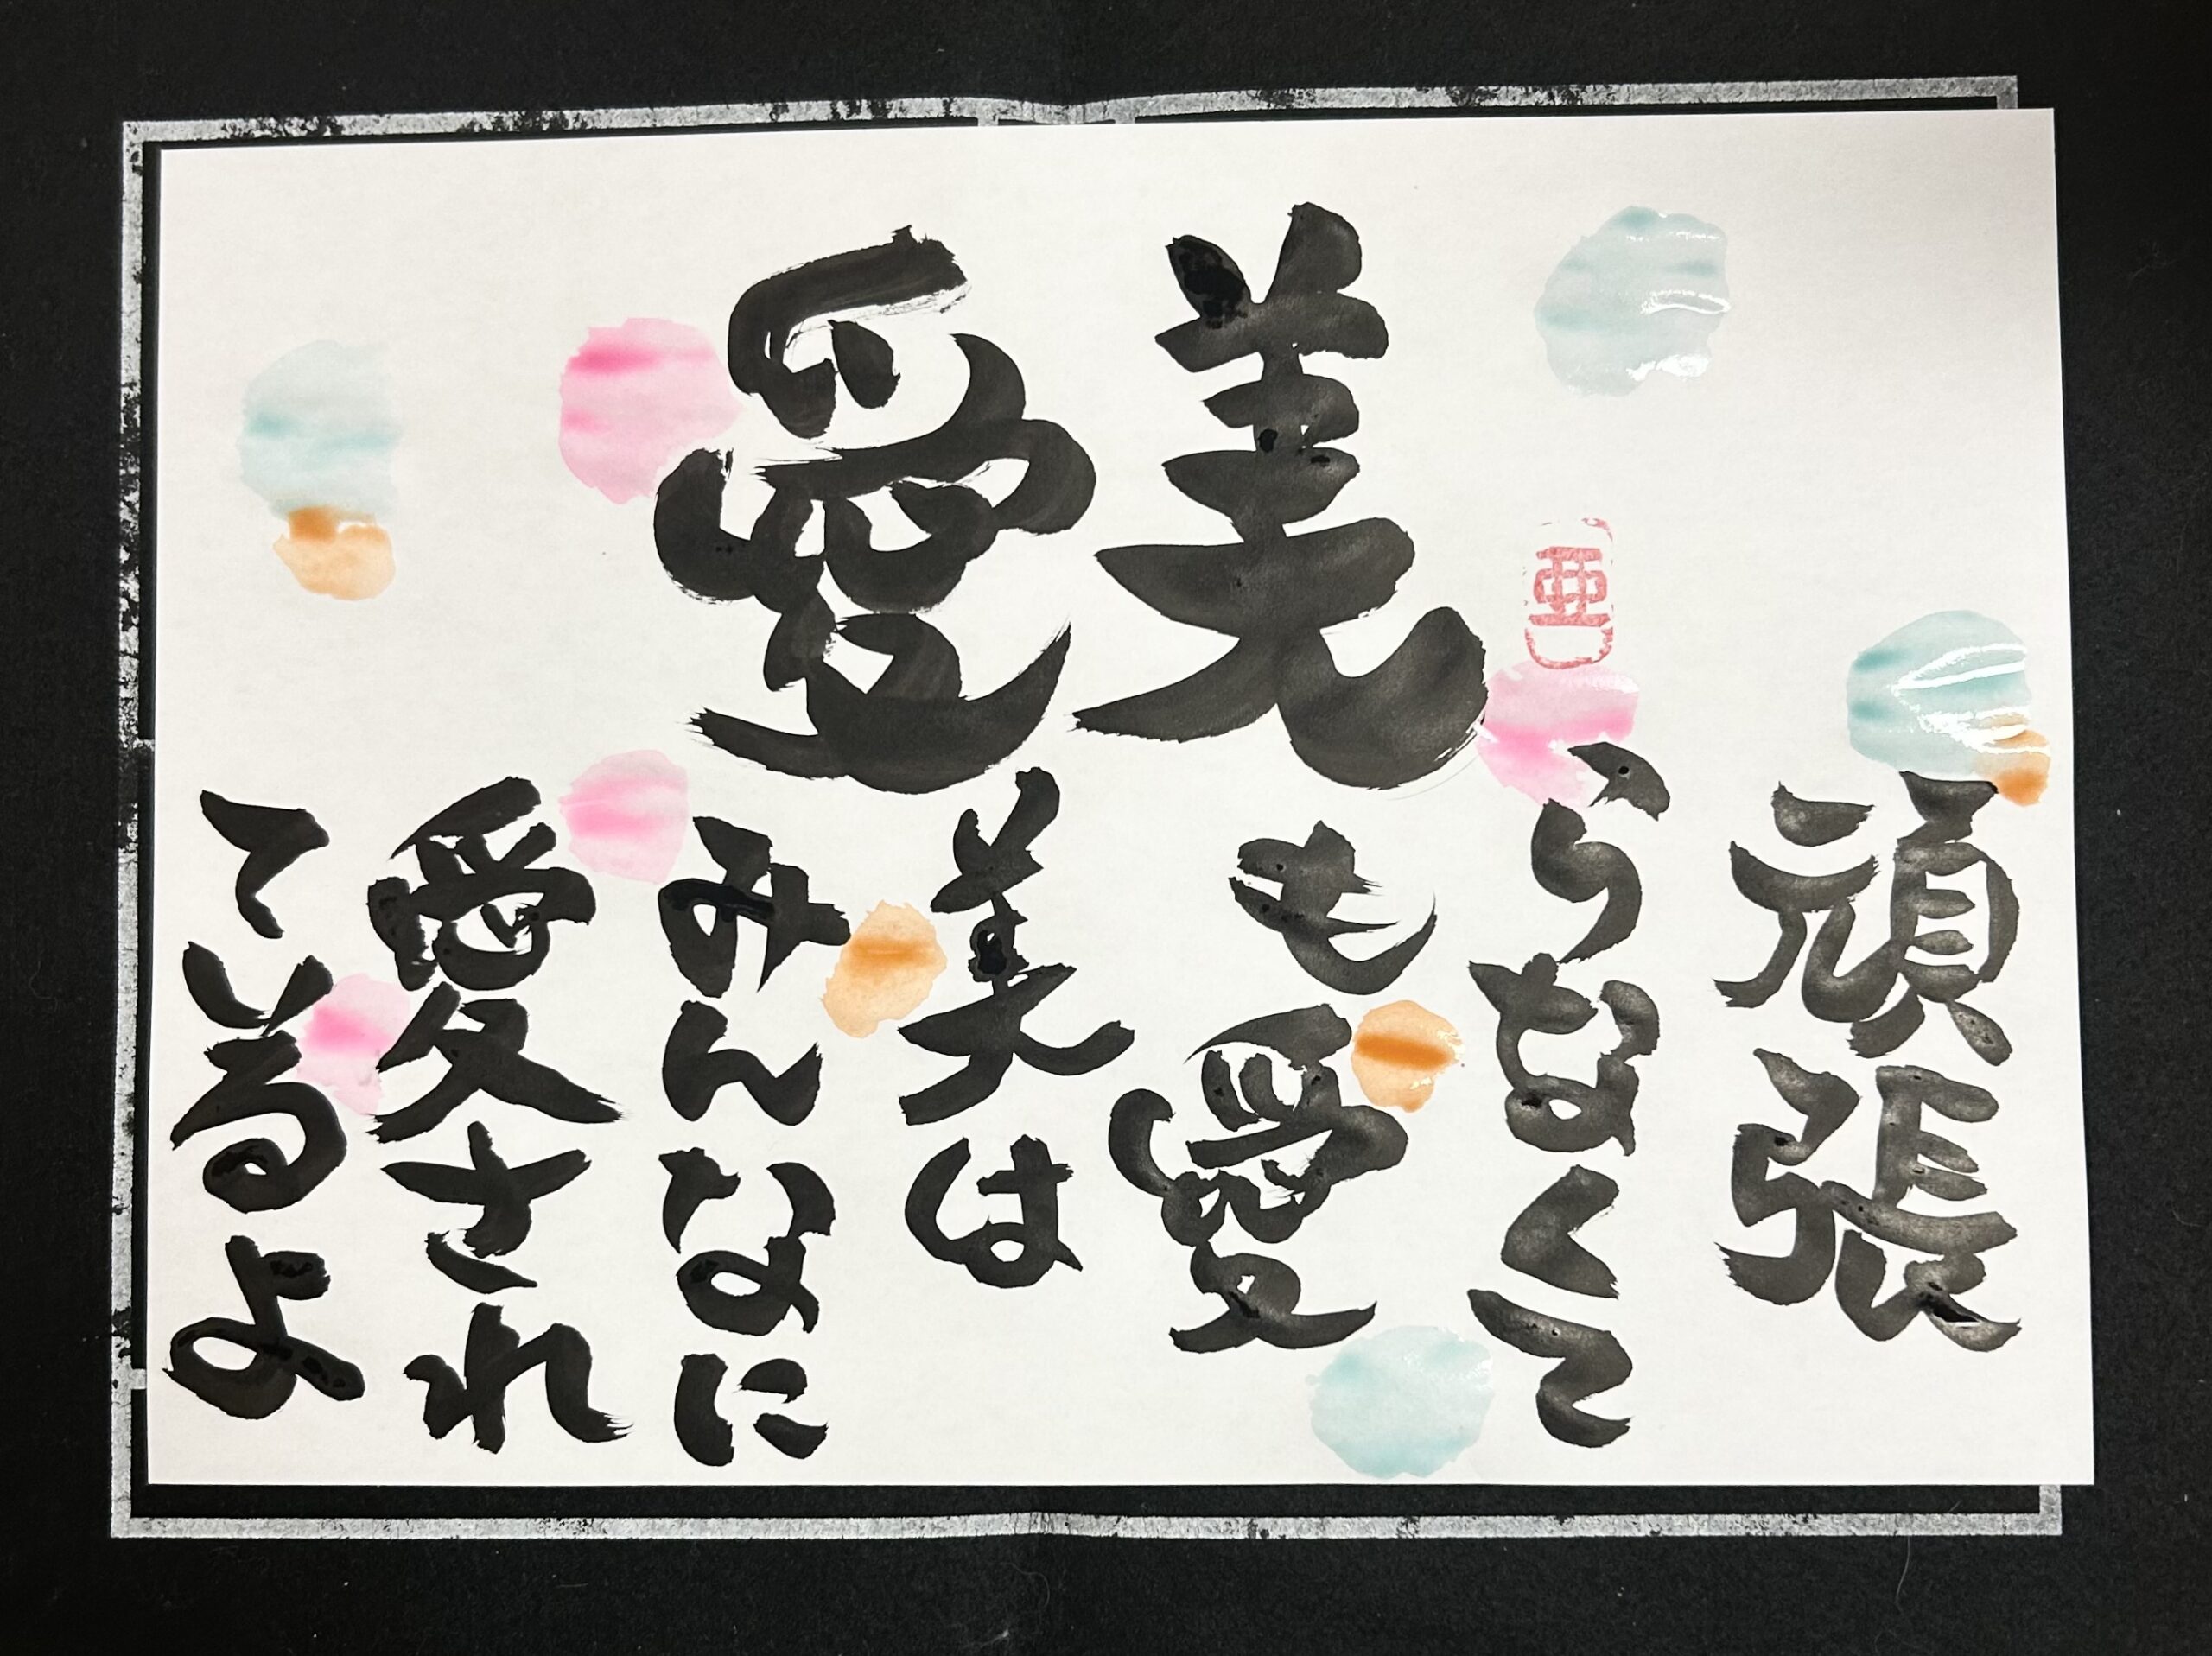 美愛
亜
頑張
らなくて
も愛
美は
みんなに
愛され
ているよ